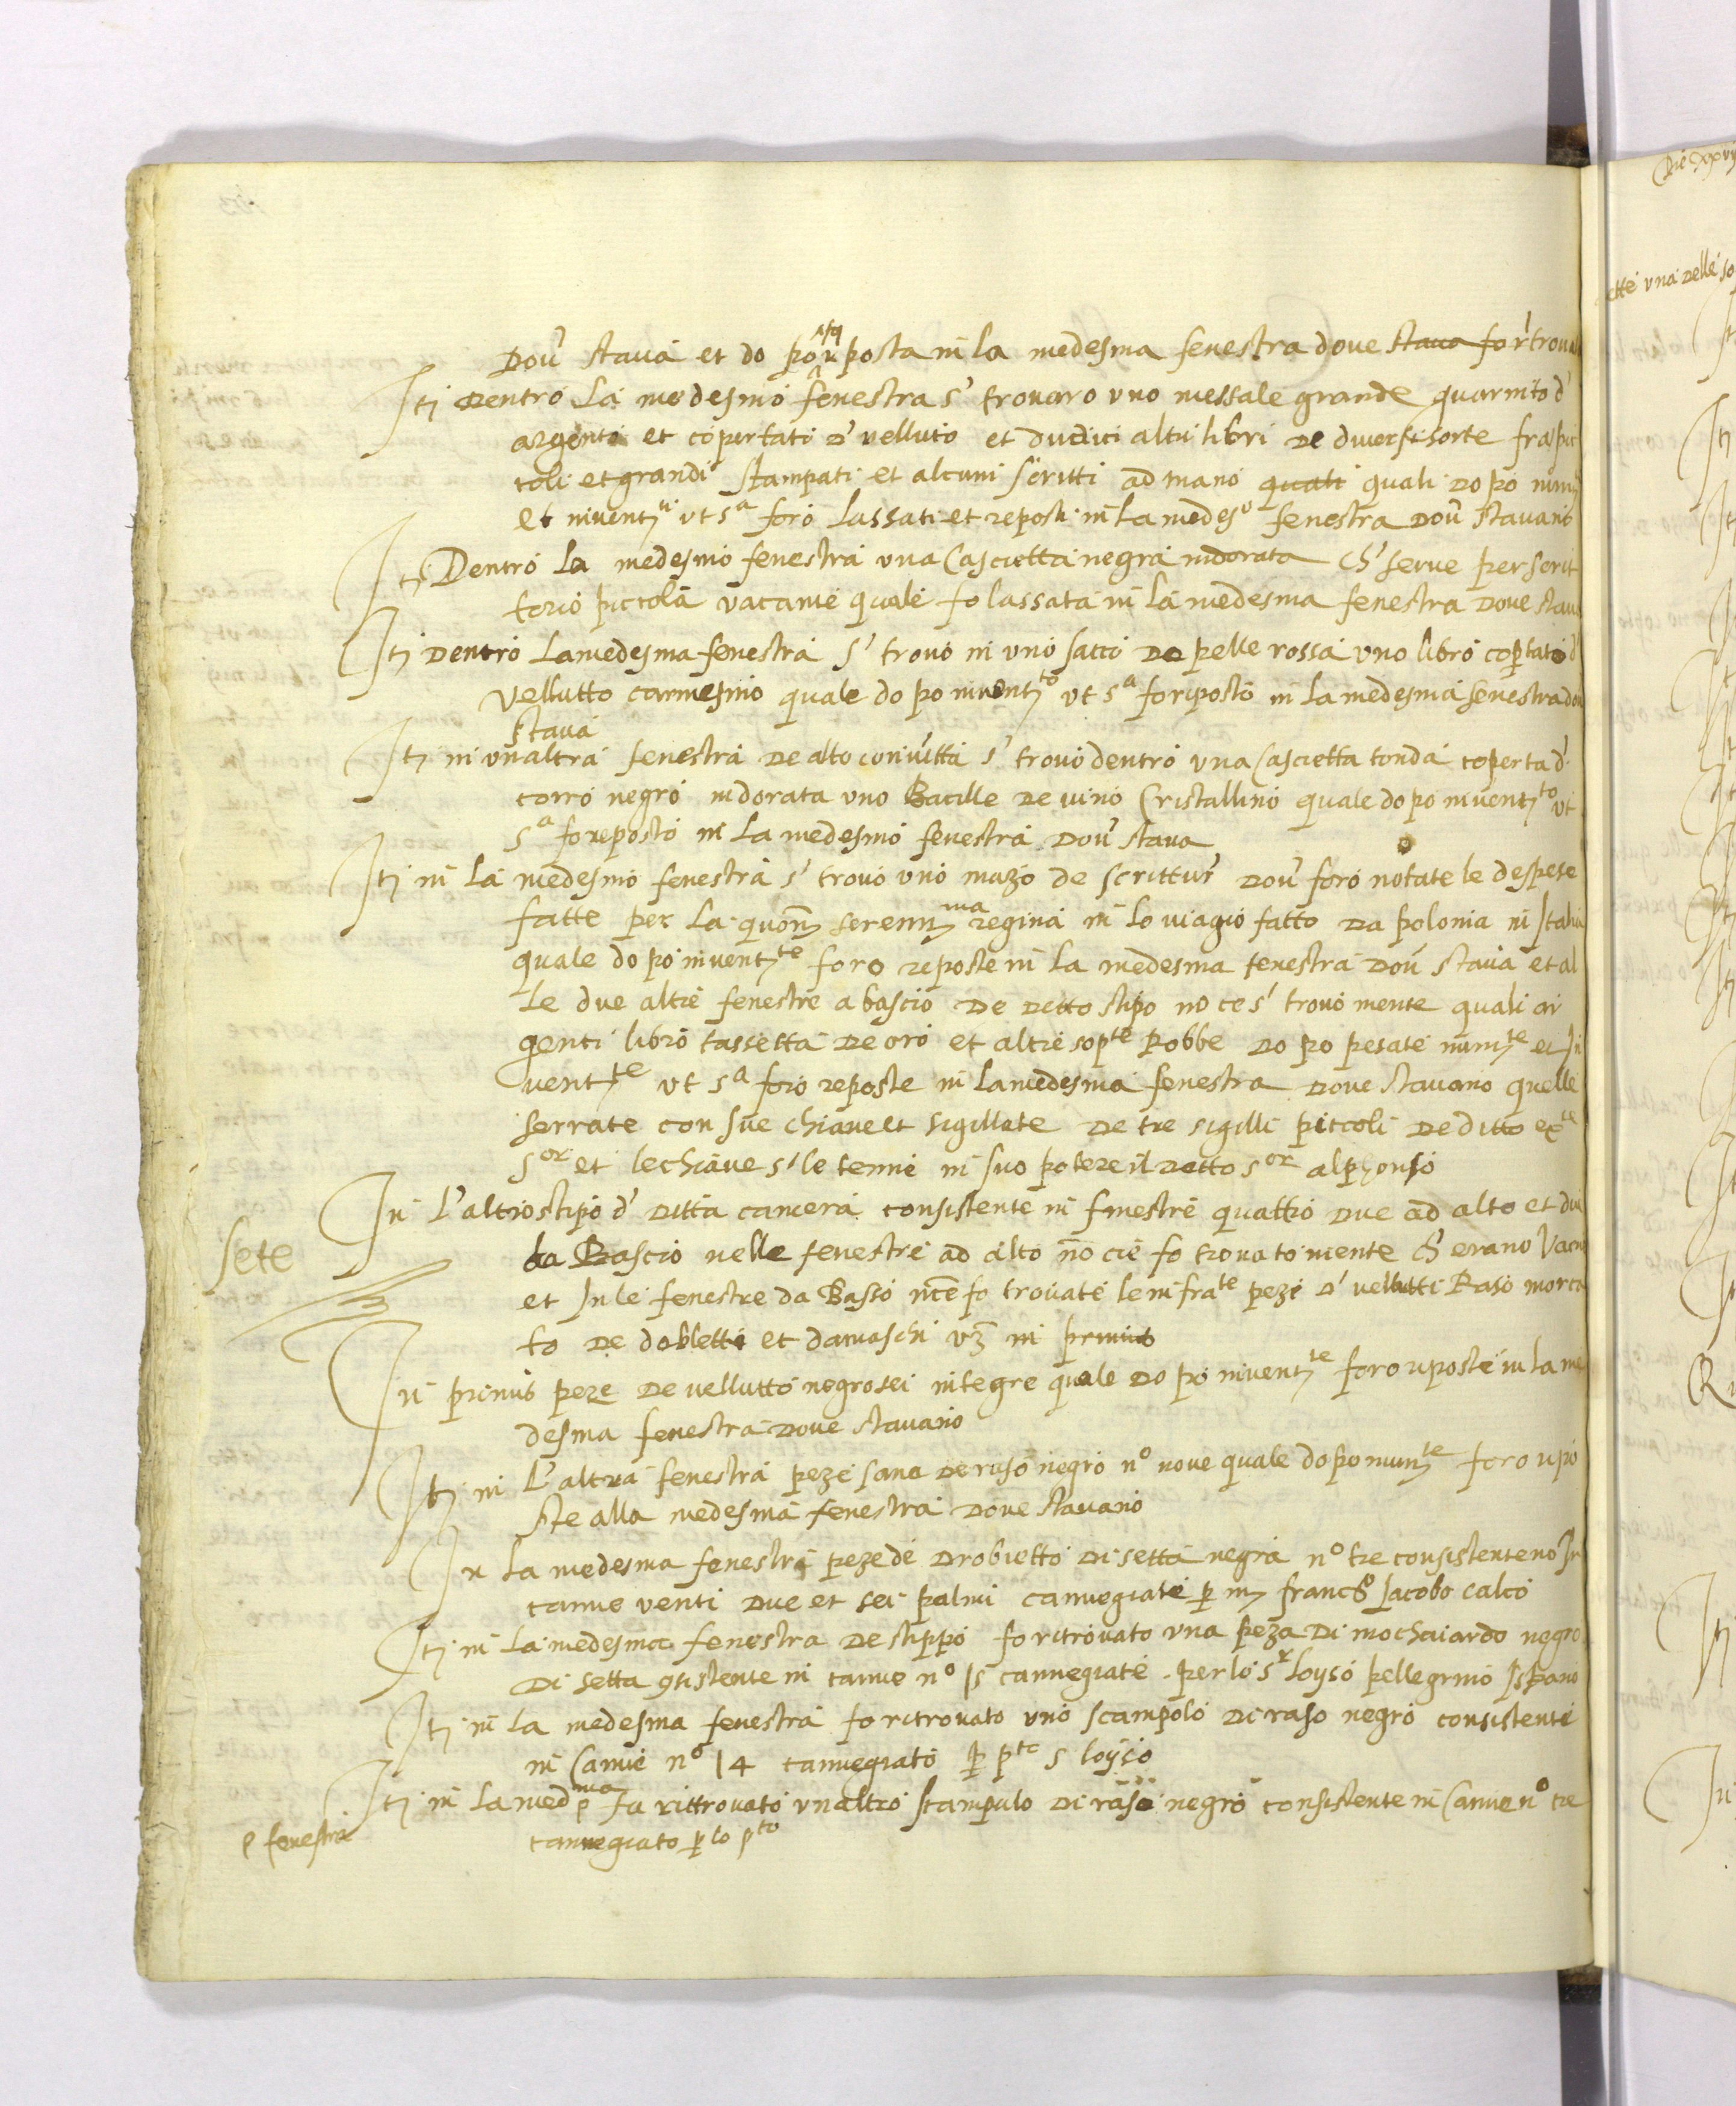 Dove stava et do po riposta in la medesma fenestra dove stava fo ritrova
Itj Dentro La medesmo fenestra s' trovaro uno messale grande guarnito d'
argento et copertati d' velluto et dudici altri libri De diverse sorte fra pic
coli et grandi stampati et alcuni scritti ad mano quali quali Do po num
et inventti ut sa foro Lassati et reposti in La medeso fenestra Dove stavano
Itj Dentro La medesmo fenestra una Cascietta negra indorata ch' serve per scrit
torio piccola vacante quale fo lassata in La medesma fenestra Dove stava
Itj Dentro La medesma fenestra s' trovo in uno sacco De pelle rossa uno libro copertato d
vellutto carmesino quale do po inventto ut sa fo riposto in La medesma fenestra dove
stava
Itj in un altra fenestra De alto s' trovo dentro una Cascietta tonda coperta d'
corro negro indorata uno Bacille De vino Cristallino quale do po inventto ut
sa fo reposto in La medesmo fenestra Dove stava
Itj in La medesmo fenestra s' trovo uno mazo de scritture Dove foro notate le despese
fatte per La quonm serenma regina in Lo viagio fatto Da polonia in Italia
quale do po inventte foro reposte in La medesma fenestra Dove stava et al
Le due altre fenestre a bascio De Detto stipo no ce s' trovo niente quali ar
genti libro tassetta De oro et altre sopte Robbe Do po pesate numte et In
ventte ut sa foro reposte in La medesma fenestra Dove stavano quelle
serrate con sue chiave et sigillate De tre sigilli piccoli De ditto exte
sor et le chiave s' le tenne in suo potere il Detto sor alphonso
In L'altro stipo d' Ditta camera consistente in finestre quattro Due ad alto et due
Sete
da Bascio nelle fenestre ad alto no cie fo trovato niente ch' erano Vacue
et In le fenestre da Basso nce fo trovate le infrate peze d' vellutti Raso morca
to De dobletti et damaschi vz in primis
In primis peze De vellutto negro sei integre quale Do po inventte foro riposte in La me
desma fenestra Dove stavano
Itj in L'altra fenestra peze sane De raso negro no nove quale do po numte foro ripo
ste alla medesma fenestra Dove stavano
In La medesma fenestra peze de Drobietto Di setta negra no tre consisteteno In
canne venti Due et sei palmi cannegiate p m francso Jacobo calco
Itj in La medesma fenestra De stippo fo ritrovato una peza Di mochaiardo negro
Di setta consistente in canne no 15 cannegiate per lo sr Loyso pellegrino Ispano
Itj in La medesma fenestra fo ritrovato uno scampolo Di raso negro consistente
in Canne no 14 cannegiato p pto s Loyso
Itj in La medma fo rittrovato un altro scampulo Di raso negro consistente in Canne no tre
p fenestra
cannegiato p lo pto